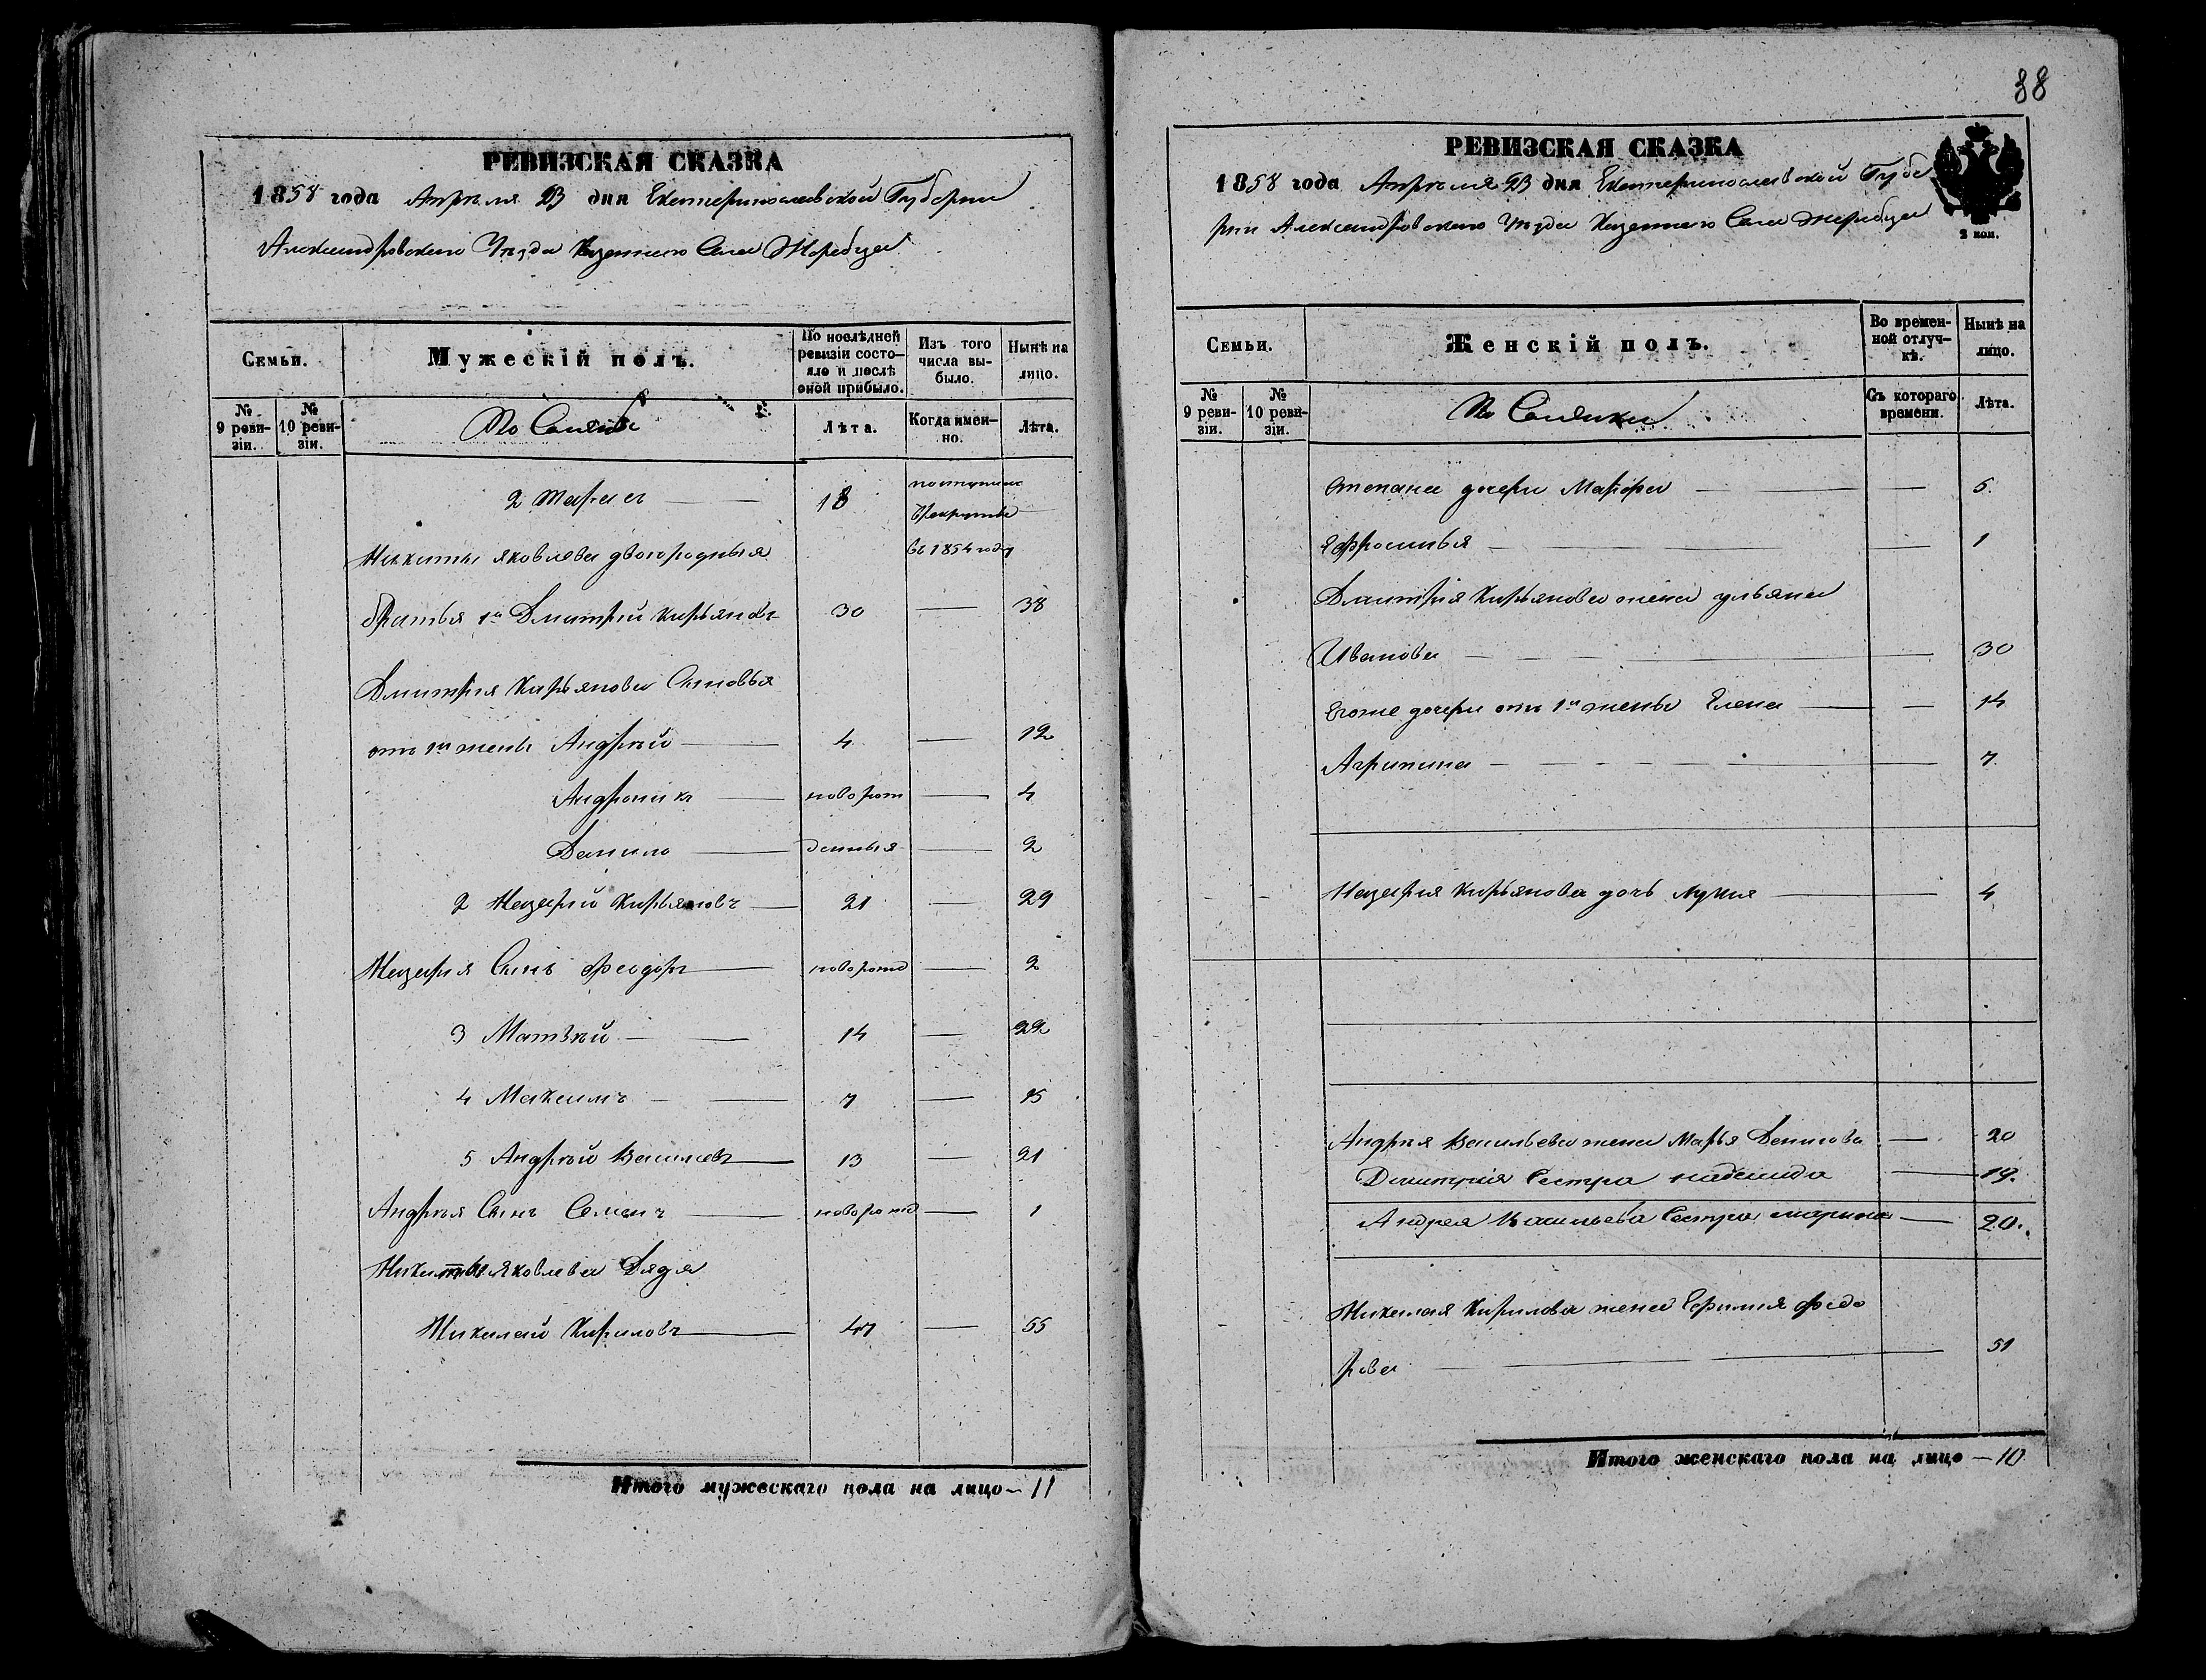 РЕВИЗСКАЯ СКАЗКА
1858 года Апреля 23 дня Екатеринославской Губернии
Александровского Уезда Казенного Села Жеребца
Семьи.
Мужескій полъ.
По послѣдней ревизіи состояло и послѣ оной прибыло.
Изъ того числа выбыло.
Нынѣ на лицо.
№ 9 ревизіи.
№ 10 ревизіи.
Лѣта.
Когда именно.
Лѣта.
2 Тарасъ 18
въ 1854 году
Никиты Яковлева двоюродныя
братья 1й Дмитрій Кирьяновъ 30 — 38
Дмитрія Кирьянова Сыновья
отъ 1й жены Андрѣй 4 — 12
Андроникъ новорож — 4
Данило денныя — 2
2 Назарій Кирьяновъ 21 — 29
Назарія Сынъ Феодоръ новорожд — 2
3 Матвѣй 14 — 22
4 Максимъ 7 — 15
5 Андрѣй Васильевъ 13 — 21
Андрѣя Сынъ Семенъ новорожд — 1
Никиты Яковлева Дядя
Николай Кириловъ 47 — 55
Итого мужескаго пола на лицо — 11
88
РЕВИЗСКАЯ СКАЗКА
1858 года Апреля 23 дня Екатеринославской Губе
рнии Александровского Уезда Казенного Села Жеребца
2 коп.
Семьи.
Женскій полъ.
Во временной отлучкѣ.
Нынѣ на лицо.
№ 9 ревизіи.
№ 10 ревизіи.
Съ котораго времени.
Лѣта.
Степана дочери Марфа — 5
Ефросинья — 1
Дмитрія Кирьянова жена Ульяна
Иванова — 30
Егоже дочери отъ 1й жены Елена — 14
Агрипина — 7
Назарія Кирьянова дочь — 4
Андрѣя Васильева жена Марья Денисова — 20
Дмитрія Сестра — 19.
Андрея Васильева Сестра марина — 20.
Николая Кирилова жена Ефимия Федо
рова — 51
Итого женскаго пола на лицо — 10